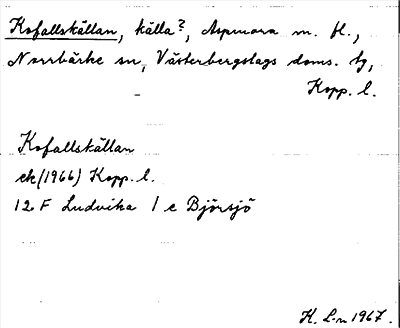 Kofallskällan, källa?, Aspmora m. fl.,
Norrbärke sn, Västerbergslags doms. tg,
Kopp. l.
Kofallskällan
ek (1966) Kopp. l.
12 F Ludvika 1 e Björsjö
K. L-n 1967.